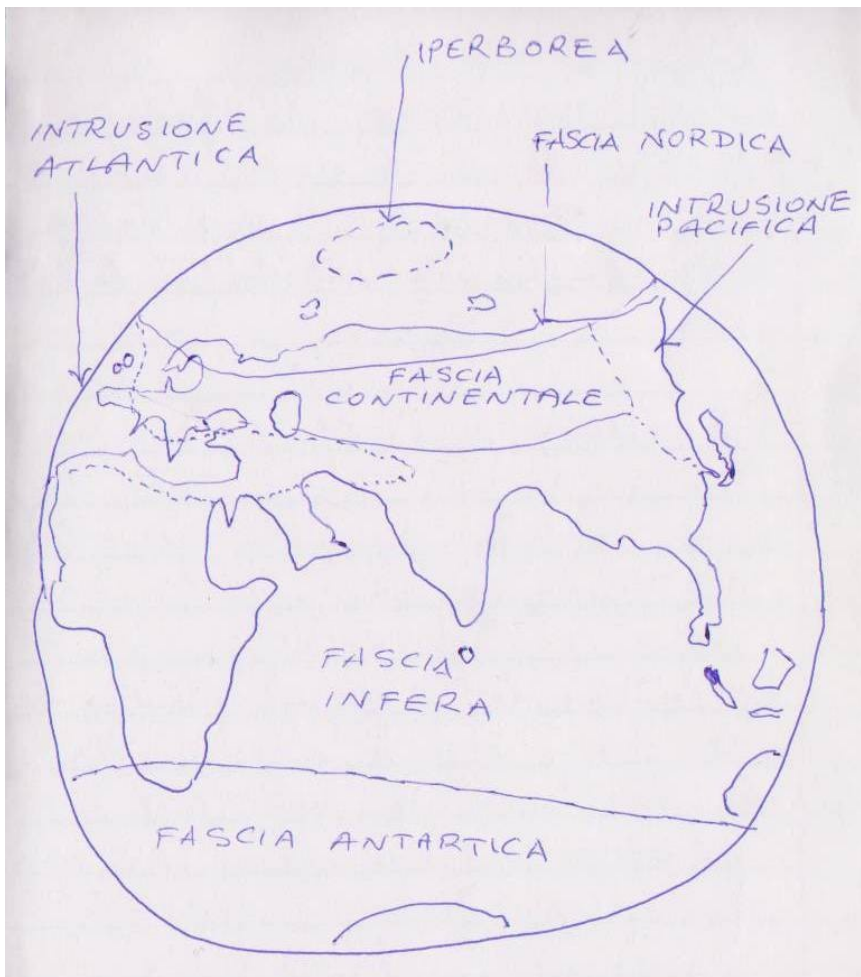 IPERBOREA
INTRUSIONE
ATLANTICA
FASCIA NORDICA
INTRUSIONE
PACIFICA
FASCIA
CONTINENTALE
FASCIA
INFERA
FASCIA ANTARTICA